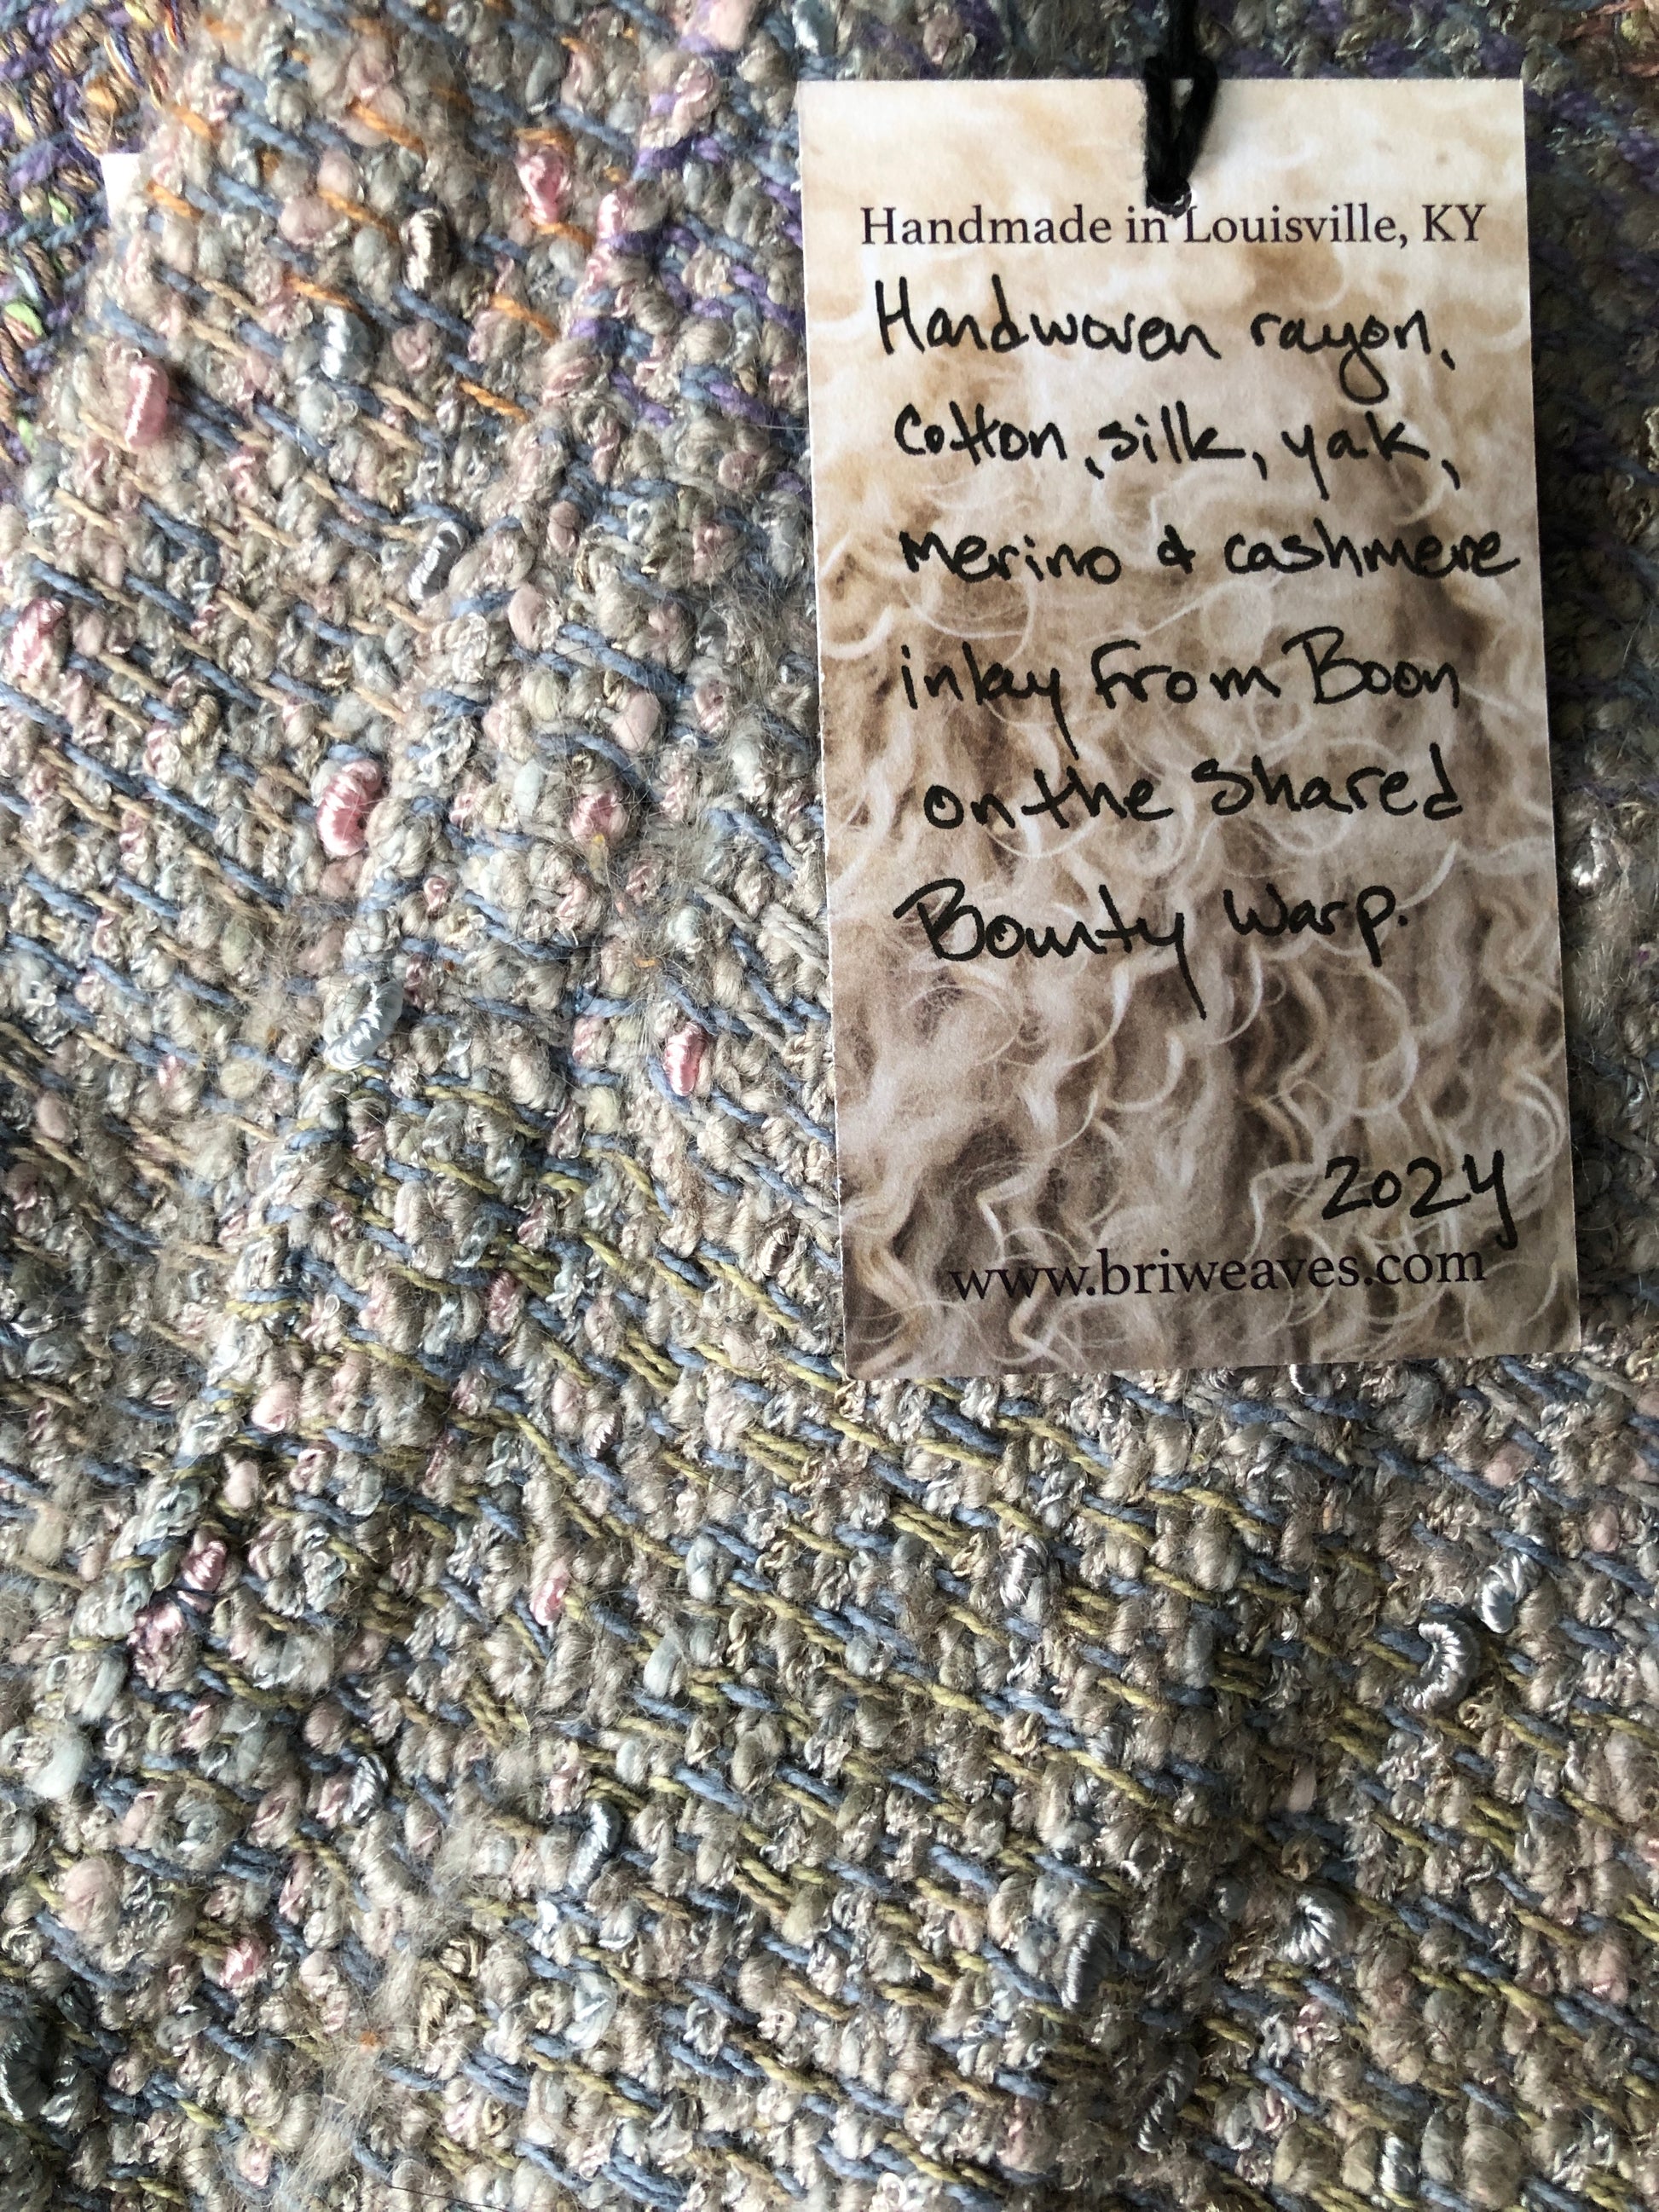 Handmade in Louisville, KY
Handwoven rayon,
cotton, silk, yak,
merino & cashmere
inlay from Boon
on the Shared
Bounty Warp.
2024
www.briweaves.com